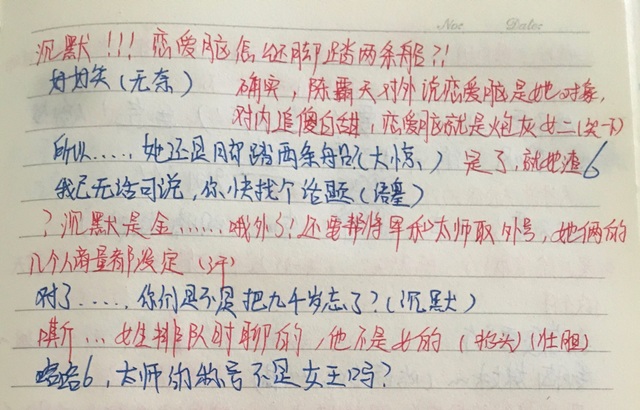 No: Date:
沉默!!!恋爱脑怎么还脚踏两条船?!
好切矢(无奈) 确实,陈霸天对外说恋爱脑是她对象,
对内追傻白甜,恋爱脑就是炮灰女二(哭一下)
所以……她还是脚踏两条船(大惊) 是了,就她渣6
我已无话可说,你快找个话题(语塞)
?沉默是金……哦外号!还需帮将军和太师取外号,她俩的
几个人商量都没定(汗)
对了……你们是不是把九千岁忘了?(沉默)
嘶…女生排队时聊的,他不是女的(抬头)(壮胆)
哈哈6,太师你的号不是女王吗?